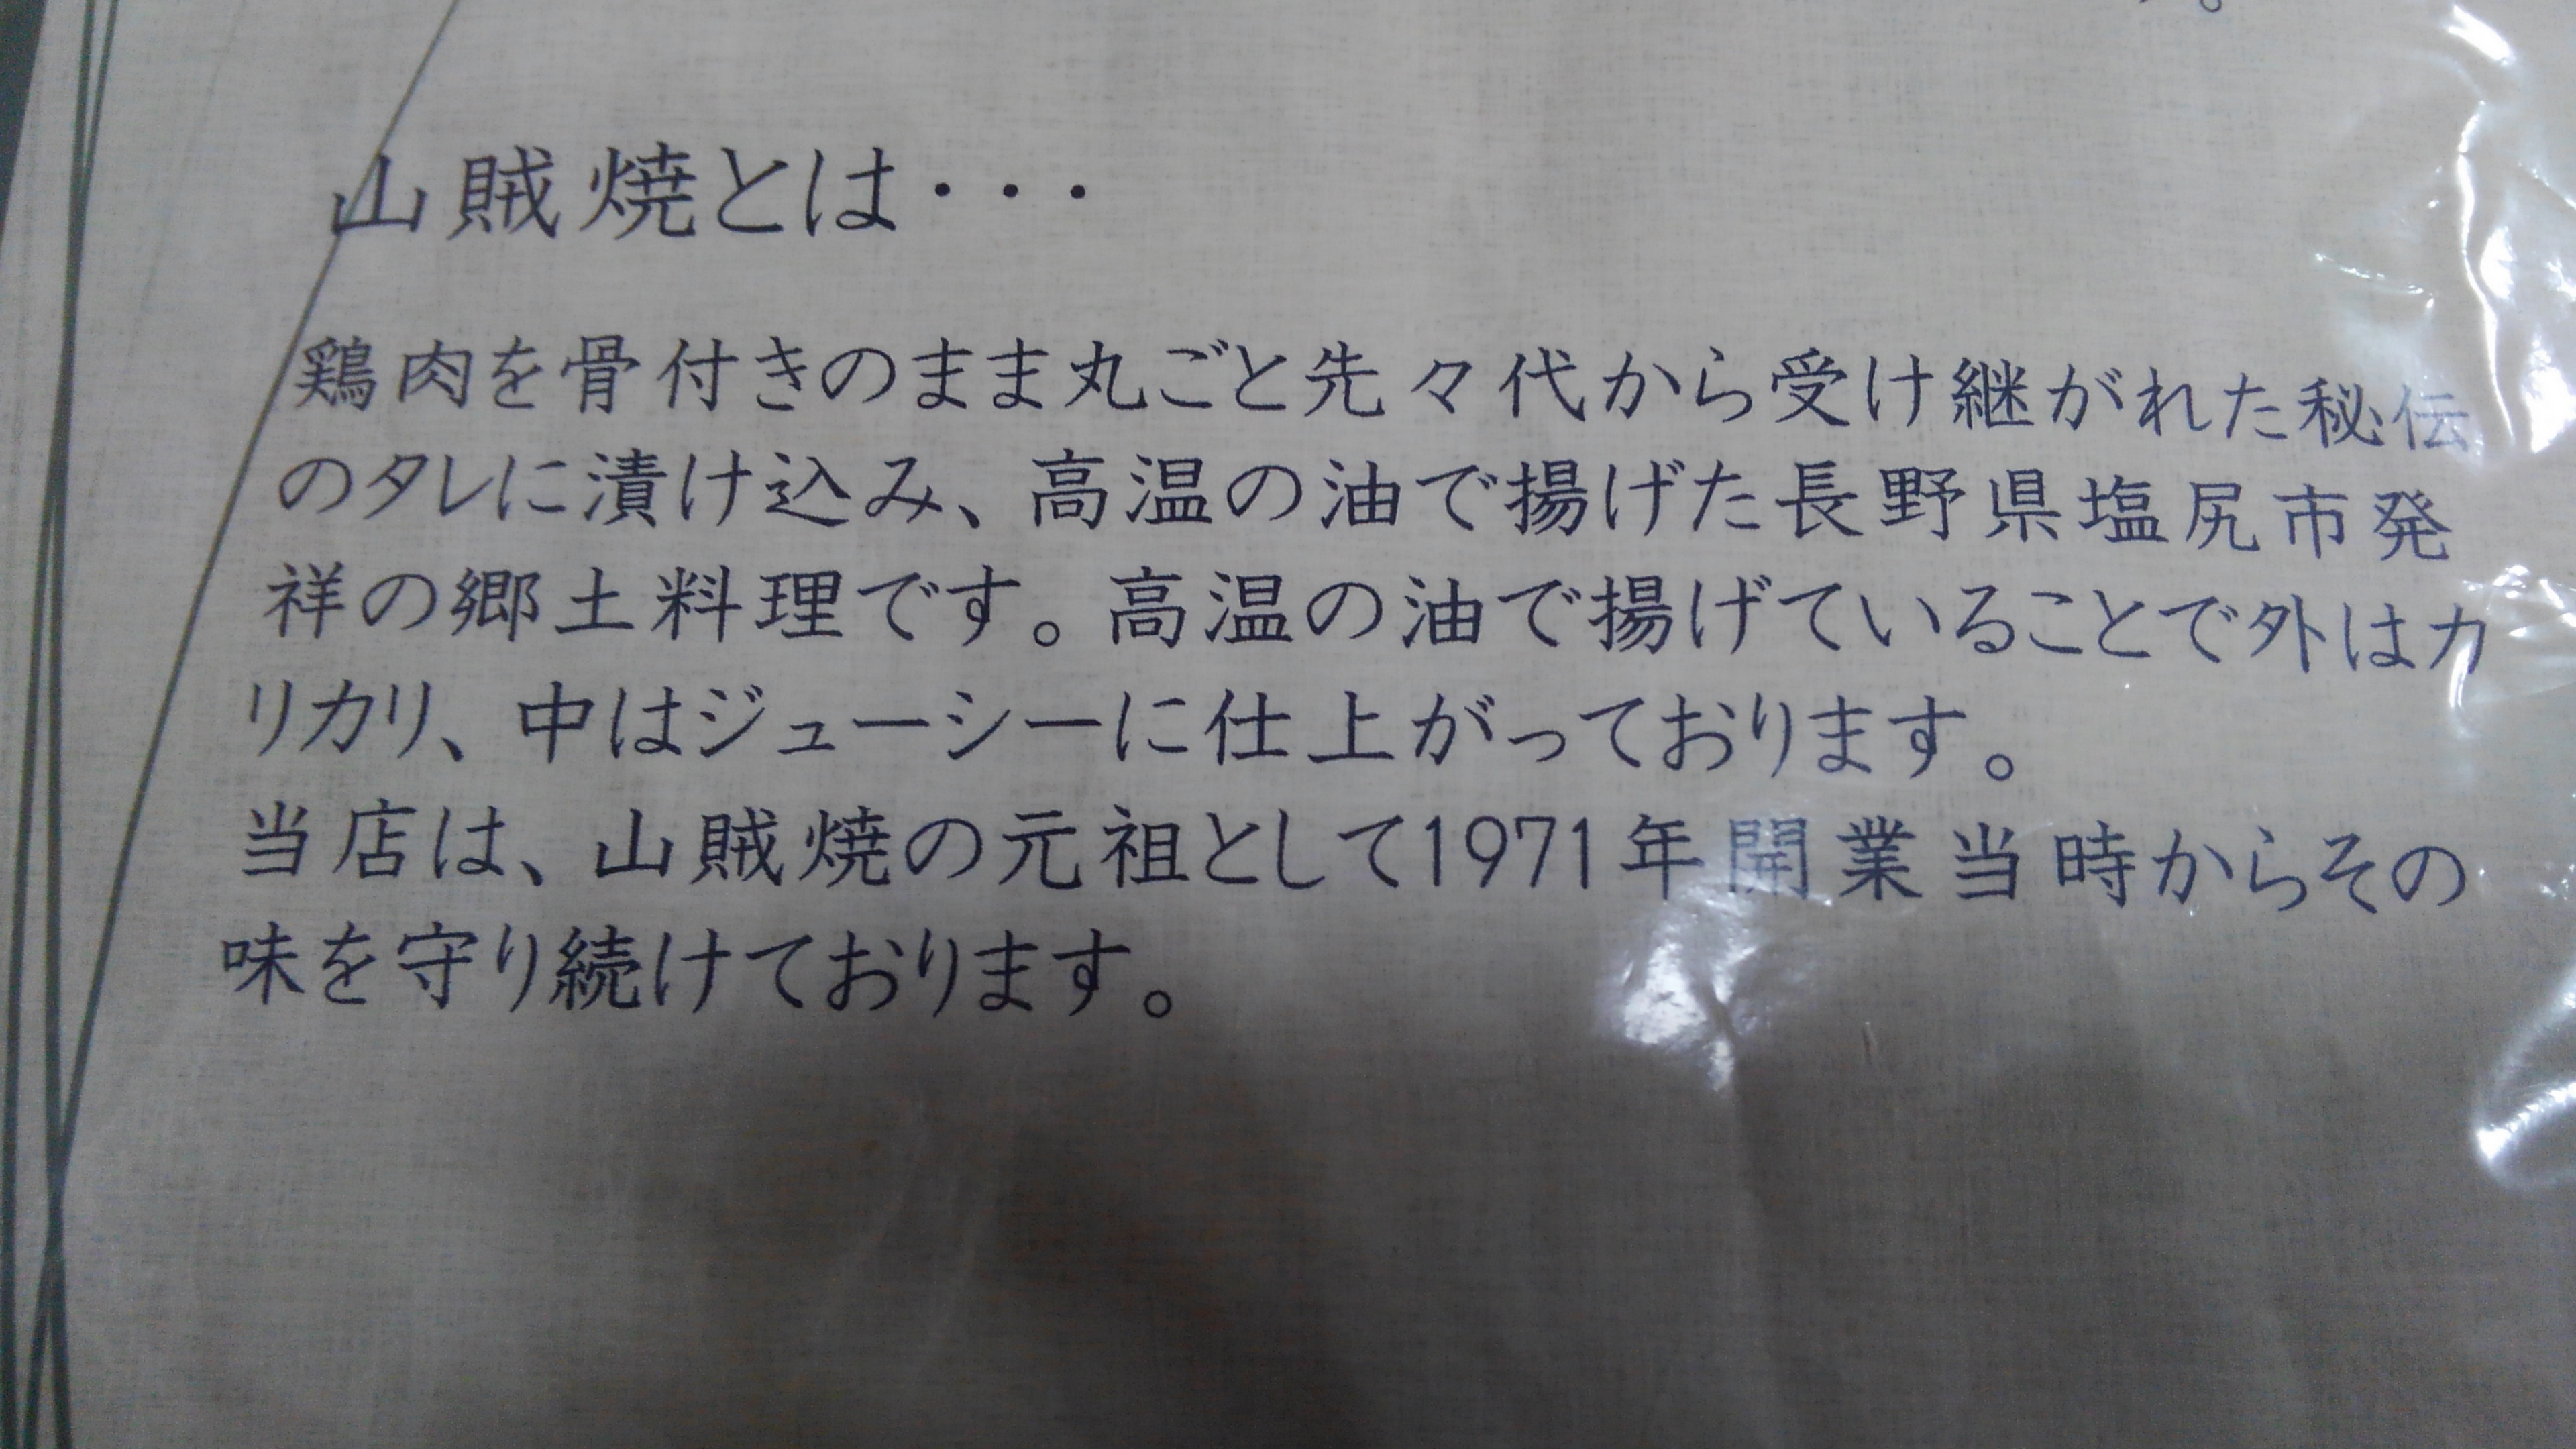 山賊焼とは・・・
鶏肉を骨付きのまま丸ごと先々代から受け継がれた秘伝
のタレに漬け込み、高温の油で揚げた長野県塩尻市発
祥の郷土料理です。高温の油で揚げていることで外はカ
リカリ、中はジューシーに仕上がっております。
当店は、山賊焼の元祖として1971年開業当時からその
味を守り続けております。